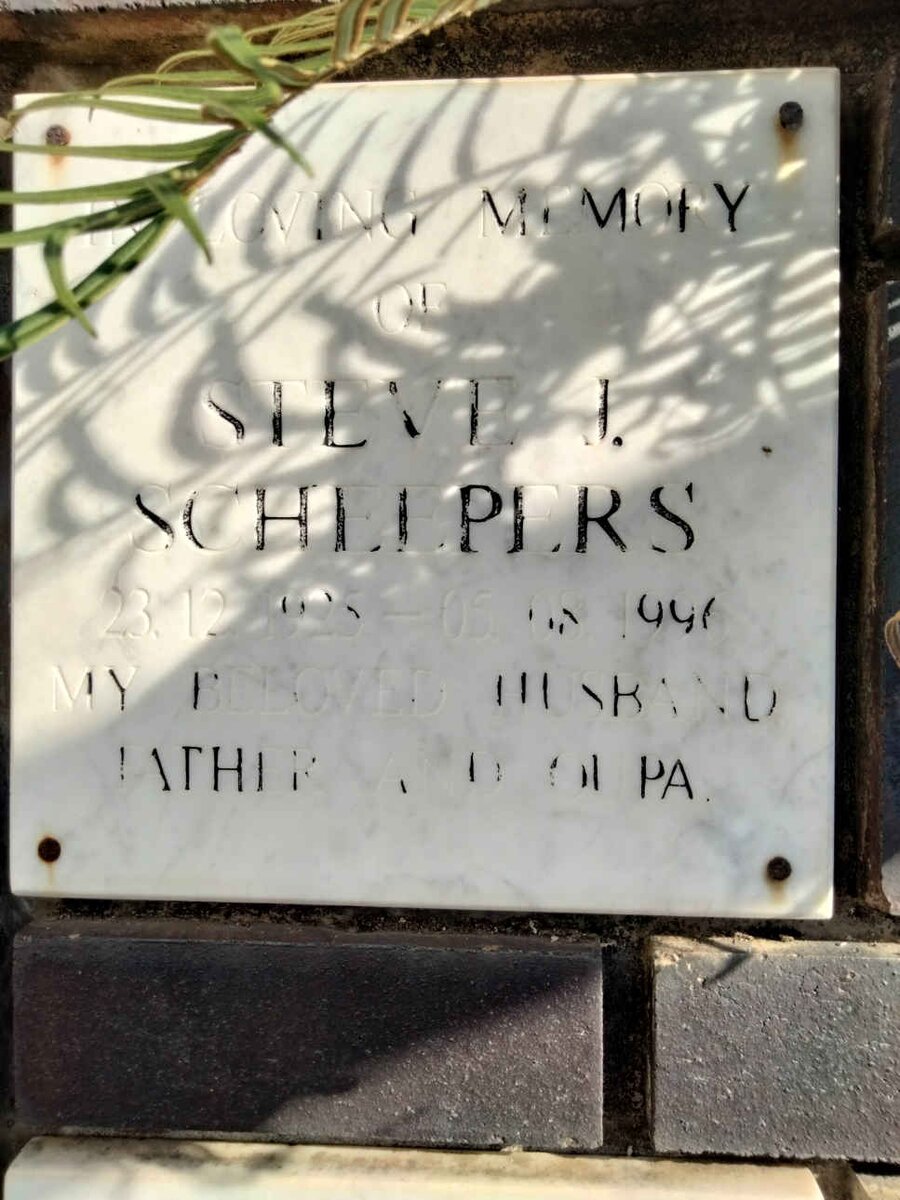 IN LOVING MEMORY
OF
STEVE J.
SCHEEPERS
23.12.1925 - 05.08.1996
MY BELOVED HUSBAND,
FATHER AND OUPA.